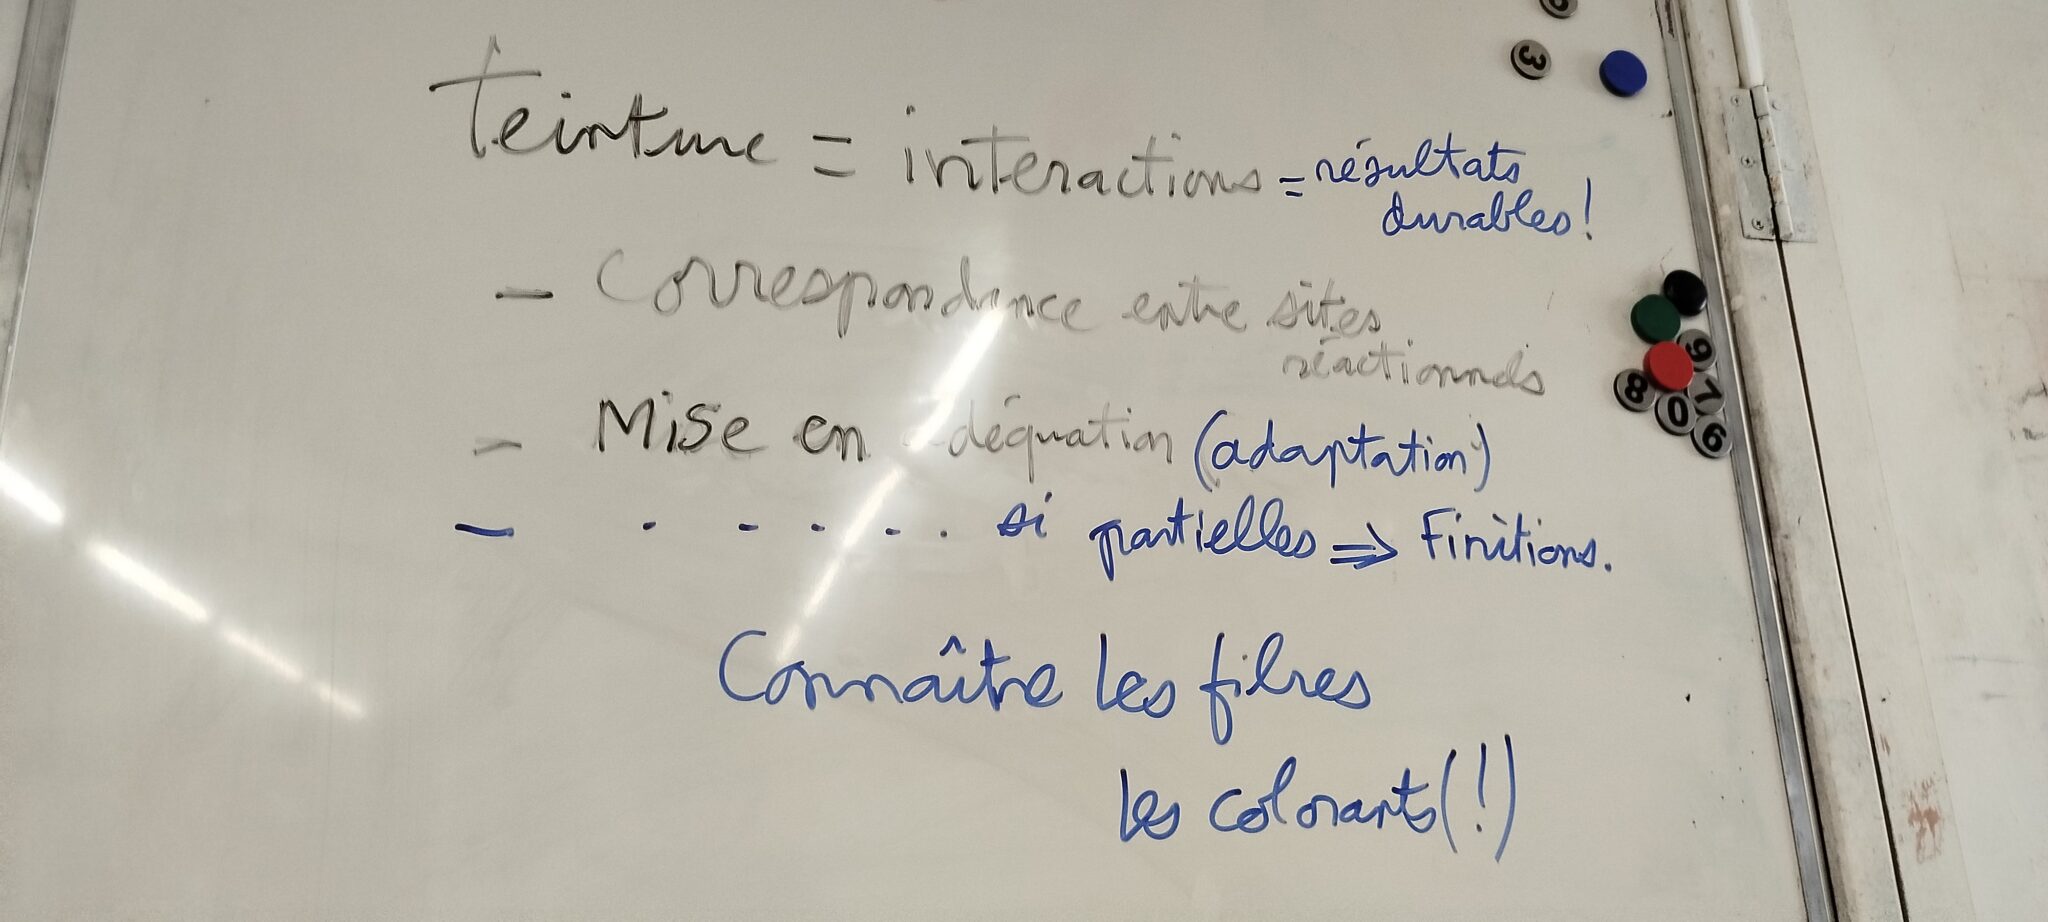 teinture = interactions = résultats
durables!
- Correspondance entre sites
réactionnels
- Mise en adéquation (adaptation)
- . - . . . . si partielles ⇒ Finitions.
Connaître les fibres
les colorants(!)
3
9
8
0
1
6